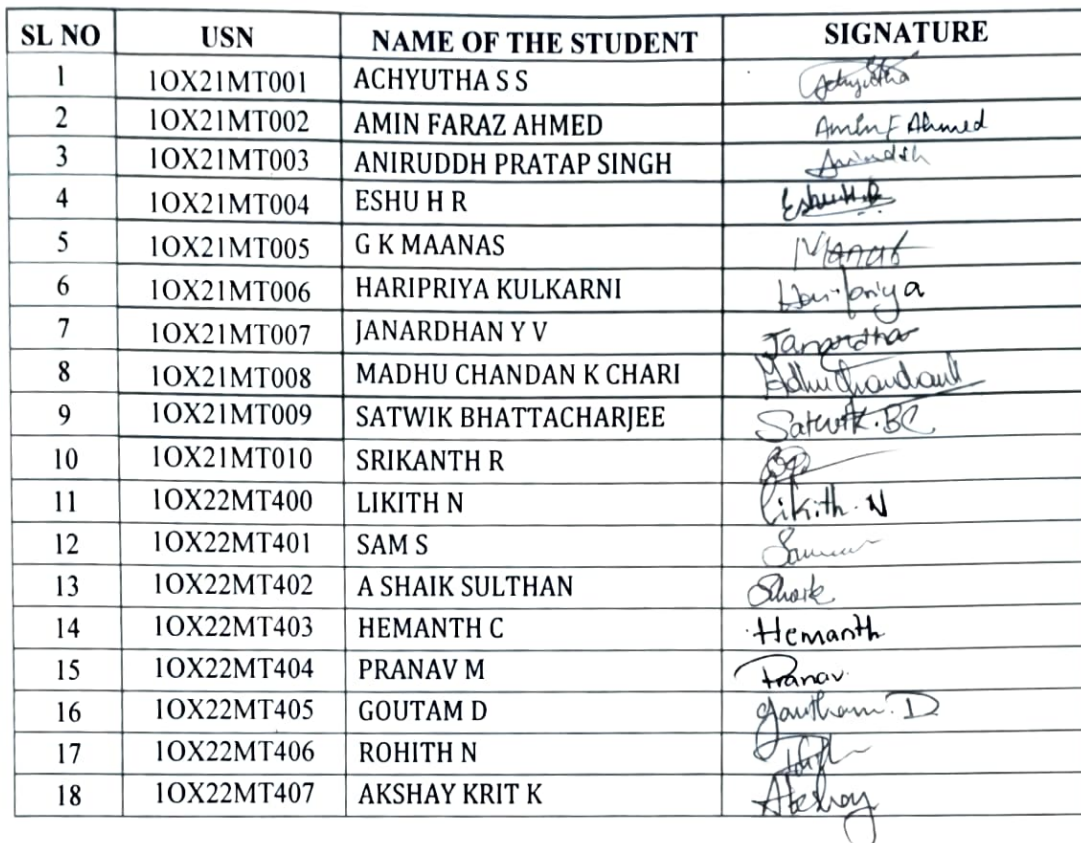 SL NO USN NAME OF THE STUDENT SIGNATURE
1 1OX21MT001 ACHYUTHA S S Achyutha
2 1OX21MT002 AMIN FARAZ AHMED Amin F Ahmed
3 1OX21MT003 ANIRUDDH PRATAP SINGH Aniruddh
4 1OX21MT004 ESHU H R Eshu H.R
5 1OX21MT005 G K MAANAS Manas
6 1OX21MT006 HARIPRIYA KULKARNI Haripriya
7 1OX21MT007 JANARDHAN Y V Janardhan
8 1OX21MT008 MADHU CHANDAN K CHARI
9 1OX21MT009 SATWIK BHATTACHARJEE Satwik.BC
10 1OX21MT010 SRIKANTH R
11 1OX22MT400 LIKITH N Likith. N
12 1OX22MT401 SAM S
13 1OX22MT402 A SHAIK SULTHAN Shaik
14 1OX22MT403 HEMANTH C Hemanth
15 1OX22MT404 PRANAV M Pranav
16 1OX22MT405 GOUTAM D Goutham. D
17 1OX22MT406 ROHITH N
18 1OX22MT407 AKSHAY KRIT K Akshay